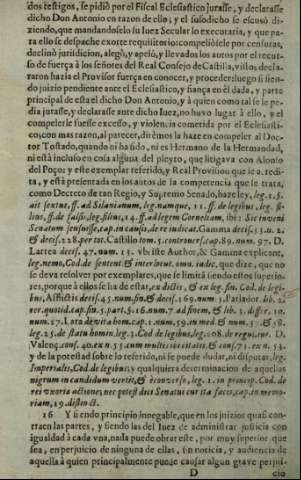 dos testigos, se pidiò por el Fiscal Eclesiastico jurasse, y declarasse
dicho Don Antonio en razon de ello; y el susodicho se escusò di-
ziendo, que mandandoselo su Juez Secular lo executaria, y que pa-
ra ello se despache exorte requisitorio: compelióse por censuras,
declinò jurisdicion, alegò, y apelò, y llevados los autos por el recur-
so de fuerça à los señores del Real Consejo de Castilla, visto, decla-
raron hazia el Provisor fuerça en conocer, y proceder: luego si sien-
do juizio pendiente ante el Eclesiastico, y fiança en èl dada, y parte
principal de esta el dicho Don Antonio, y à quien como tal se le pe-
dia jurasse, y declarasse ante dicho Juez, no huvo lugar à ello, y el
compelerle fuesse excesso, y violento, cometida por el Eclesiasti-
co; con mas razon, al parecer, dirèmos la haze en compeler al Doc-
tor Tostado, quando ni ha sido, ni es Hermano de la Hermandad,
ni està incluso en cosa alguna del pleyto, que litigava con Alonso
del Poço: y este exemplar referido, y Real Provision que le acredi-
ta, y està presentada en los autos de la competencia que se trata,
como Decreto de tan Regio, y Supremo Senado, haze ley, leg. 1. §.
ait senatus, ff. ad Silanianum, leg. nam que, 12. ff. de legibus, leg. fi-
lius, ff. de falsis, leg. filius, 14. ff. ad legem Corneliam, ibi: Sic inveni
Senatum censuisse, cap. in causis, de re iudicat. Gamma decis. 53. n. 2.
& decis. 228. per tot. Castillo tom. 5. controvers. cap. 89. num. 97. D.
Larrea decis. 47. num. 13. ubi iste Author, & Gamma explicant,
leg. nemo, Cod. de sentent. & interlocut. omn. iudic. que dize, que no
se deva resolver por exemplares, que se limita siendo estos superio-
res, porque à ellos se ha de estar, ex dictis, & ex leg. fin. Cod. de legi-
bus, Afflictis decis. 45. num. fin. & decis. 169. num. 3. Parlador. lib. 2.
rer. quotid. cap. fin. 5. part. §. 16. num. 7. ad finem, & lib. 3. differ. 10.
num. 27. Lara de vita hom. cap. 2. num. 59. in med. & num. 57. & 58.
leg. 25. de statu homin. leg. 3. Cod. de legibus, leg. 108. de regul. iur. D.
Valenç. cons. 40. ex n. 55. cum multis relatis, & cons. 71. ex n. 53.
y de la potestad sobre lo referido, ni se puede dudar, ni disputar, leg.
Imperialis, Cod. de legibus: y qualquiera determinacion de aquellas
nigrum in candidum vertit, & è converso, leg. 1. in princip. Cod. de
rei uxoriæ actione, nec potest dici Senatus cur ita facis, cap. in memo-
riam, 19. distinct.
16 Y siendo principio innegable, que en los juizios quasi con-
traen las partes, y siendo las del Juez de administrar justicia con
igualdad à cada vna, nada puede obrar este, por muy superior que
sea, en perjuicio de ninguna de ellas, sin noticia, y audiencia de
aquella à quien principalmente puede causar algun grave perjui-
D cio